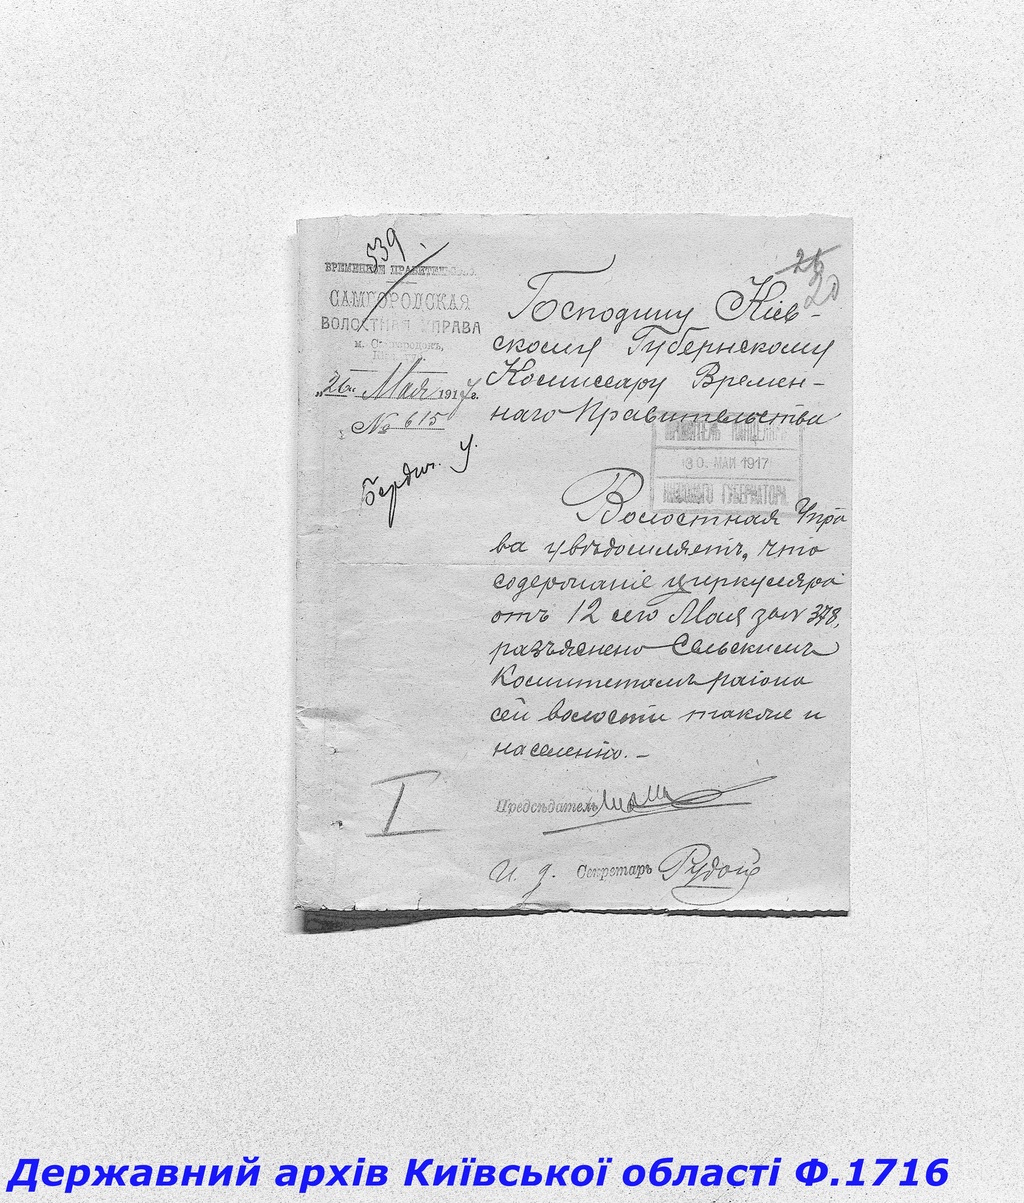 539.
25
20
ВРЕМЕННОЕ ПРАВИТЕЛЬСТВО
САМГОРОДСКАЯ
ВОЛОСТНАЯ УПРАВА
м. Самгородокъ,
„26" Мая 1917 г.
№ 615
Бердич. у.
Господину Кіев-
скому Губернскому
Комиссару Времен-
наго Правительства
30. МАЙ 1917
ГУБЕРНАТОРА
Волостная Упра
ва увѣдомляетъ, что
содержаніе циркуляра
отъ 12 сего Мая за № 378,
разъяснено Сельскимъ
Комитетамъ раіона
сей волости также и
населенію. –
Предсѣдатель
И. д. Секретарь Рудой
I
Державний архів Київської області Ф.1716